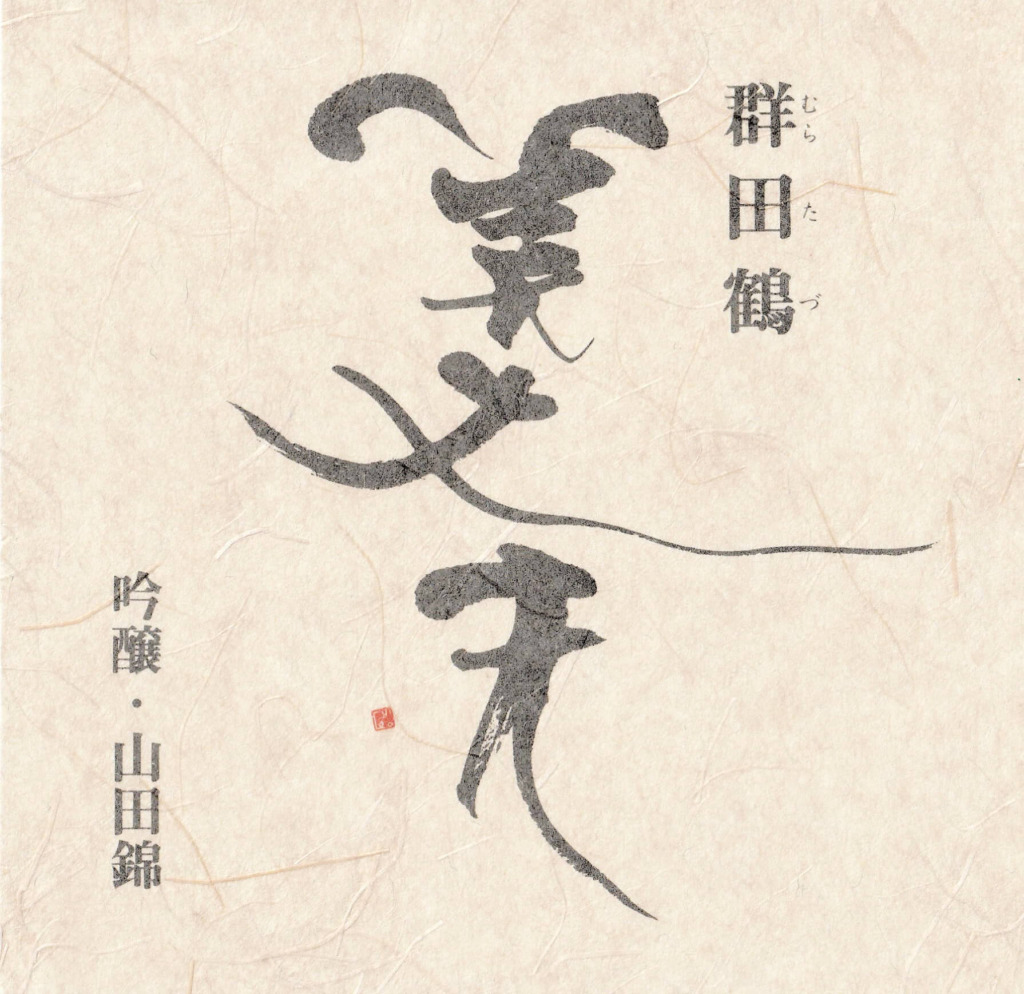 群田鶴
むらたづ
美丈夫
吟醸・山田錦